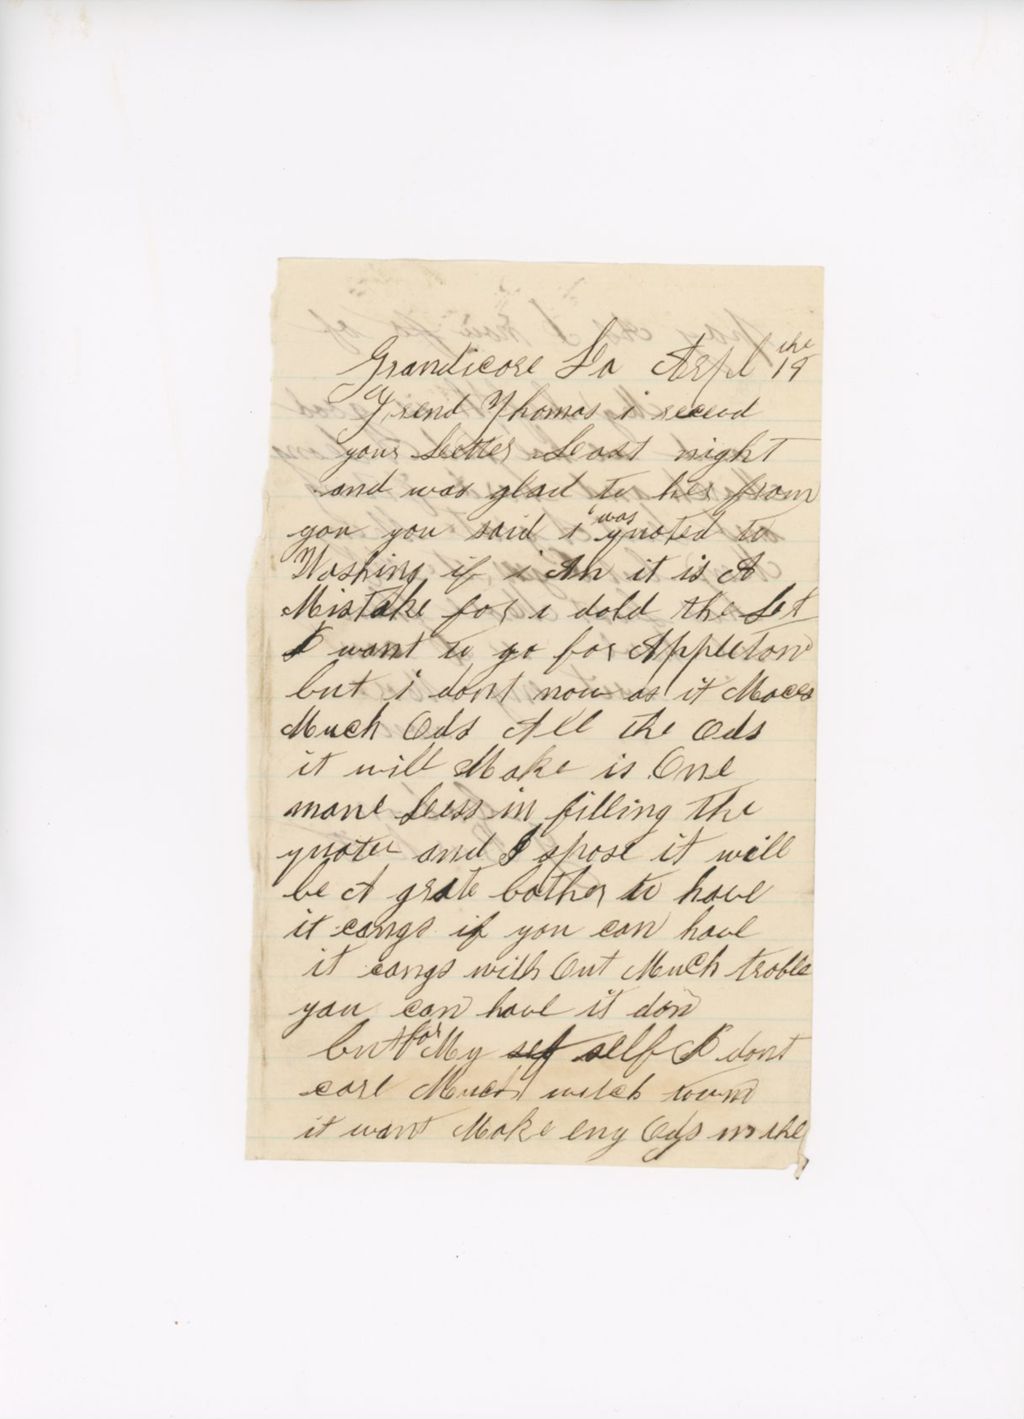 Grandicore La Arpl 19 the
Frend Thomas i receed
your Letter Least night
and was glad to her from
you you said i was quoted to
Washing if i Am it is A
Mistake for i told the Let
I want to go for Appleton
but i dont now as it Maces
Much Ods All the Ods
it will Make is One
mane Less in filling the
quoter and I spose it will
be A grate bother to have
it cangs if you can have
it cangs with Out Much troble
you can have it don
but for My self self I dont
care Much witch town
it want Make eny Ods in the